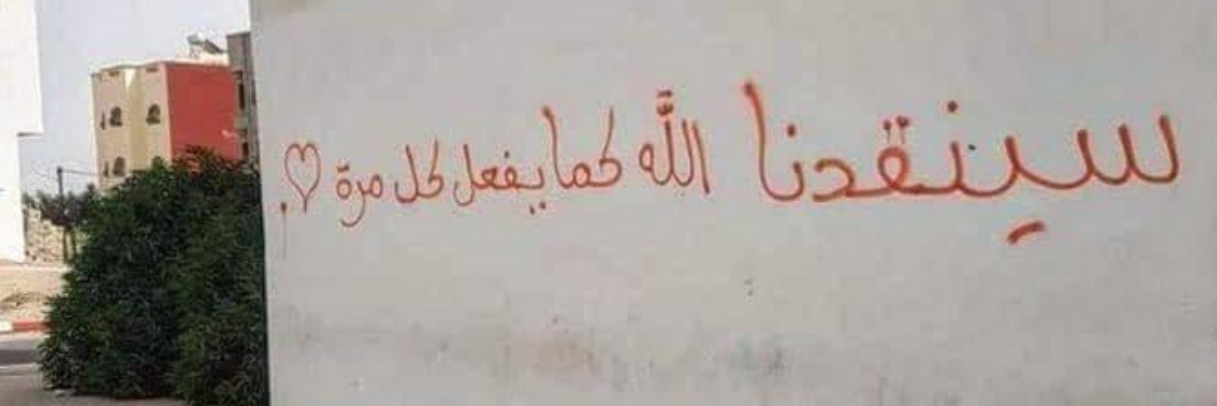 سينقدنا الله كما يفعل كل مرة ♡.